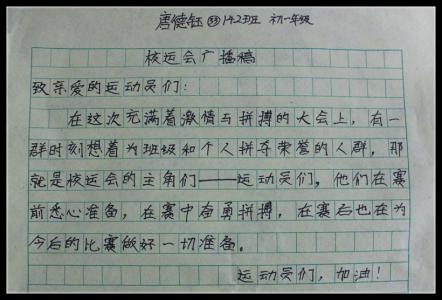 唐德钰 23 142班 初一年级
校运会广播稿
致亲爱的运动员们:
在这次充满着激情与拼搏的大会上,有一
群时刻想着为班级和个人拼夺荣誉的人群,那
就是校运会的主角们——运动员们,他们在赛
前悉心准备,在赛中奋勇拼搏,在赛后也在为
今后的比赛做好一切准备。
运动员们,加油!